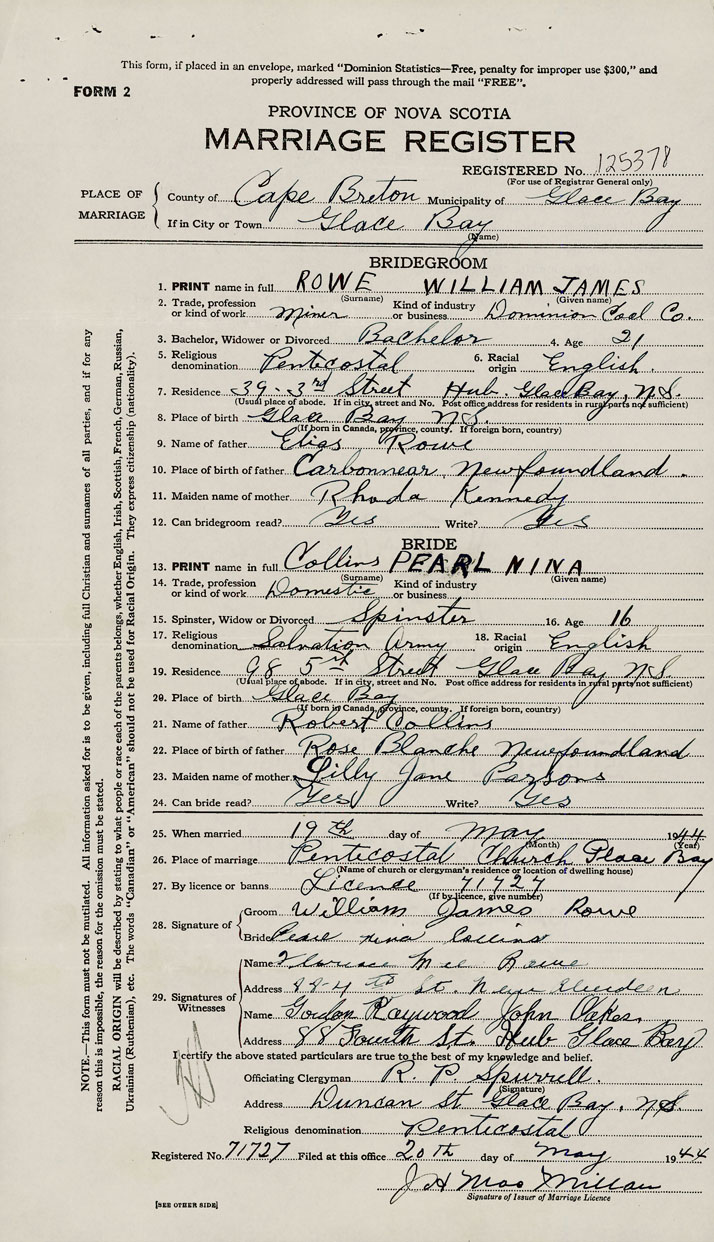 This form, if placed in an envelope, marked "Dominion Statistics—Free, penalty for improper use $300," and
properly addressed will pass through the mail "FREE".
FORM 2
PROVINCE OF NOVA SCOTIA
MARRIAGE REGISTER
REGISTERED No. 125378
(For use of Registrar General only)
PLACE OF MARRIAGE
County of Cape Breton Municipality of Glace Bay
If in City or Town Glace Bay
(Name)
BRIDEGROOM
1. PRINT name in full ROWE WILLIAM JAMES
(Surname) (Given name)
2. Trade, profession or kind of work Miner Kind of industry or business Dominion Coal Co.
3. Bachelor, Widower or Divorced Bachelor 4. Age 21
5. Religious denomination Pentecostal 6. Racial origin English.
7. Residence 39-3rd Street Hub. Glace Bay, N.S.
(Usual place of abode. If in city, street and No. Post office address for residents in rural parts not sufficient)
8. Place of birth Glace Bay N.S.
(If born in Canada, province, county. If foreign born, country)
9. Name of father Elias Rowe
10. Place of birth of father Carbonnear, Newfoundland.
11. Maiden name of mother Rhoda Kennedy
12. Can bridegroom read? Yes Write? Yes
BRIDE
13. PRINT name in full Collins PEARL NINA
(Surname) (Given name)
14. Trade, profession or kind of work Domestic Kind of industry or business
15. Spinster, Widow or Divorced Spinster 16. Age 16
17. Religious denomination Salvation Army 18. Racial origin English
19. Residence 98 5th Street Glace Bay N.S.
(Usual place of abode. If in city, street and No. Post office address for residents in rural parts not sufficient)
20. Place of birth Glace Bay
(If born in Canada, province, county. If foreign born, country)
21. Name of father Robert Collins
22. Place of birth of father Rose Blanche Newfoundland
23. Maiden name of mother Lilly Jane Parsons
24. Can bride read? Yes Write? Yes
25. When married 19th day of May 1944
(Month) (Year)
26. Place of marriage Pentecostal Church Glace Bay
(Name of church or clergyman's residence or location of dwelling house)
27. By licence or banns Licence 71727
(If by licence, give number)
28. Signature of
Groom William James Rowe
Bride Pearl Nina Collins
29. Signatures of Witnesses
Name Florence Mae Rowe
Address 88-4th St. New Aberdeen
Name Gordon Raywood John Oakes.
Address 88 Fourth St. Hub Glace Bay
I certify the above stated particulars are true to the best of my knowledge and belief.
Officiating Clergyman R. P. Spurrell.
(Signature)
Address Duncan St Glace Bay, N.S.
Religious denomination Pentecostal
Registered No. 71727 Filed at this office 20th day of May 1944
J H MacMillan
Signature of Issuer of Marriage Licence
[SEE OTHER SIDE]
NOTE.—This form must not be mutilated. All information asked for is to be given, including full Christian and surnames of all parties, and if for any
reason this is impossible, the reason for the omission must be stated.
RACIAL ORIGIN will be described by stating to what people or race each of the parents belongs, whether English, Irish, Scottish, French, German, Russian,
Ukrainian (Ruthenian), etc. The words "Canadian" or "American" should not be used for Racial Origin. They express citizenship (nationality).